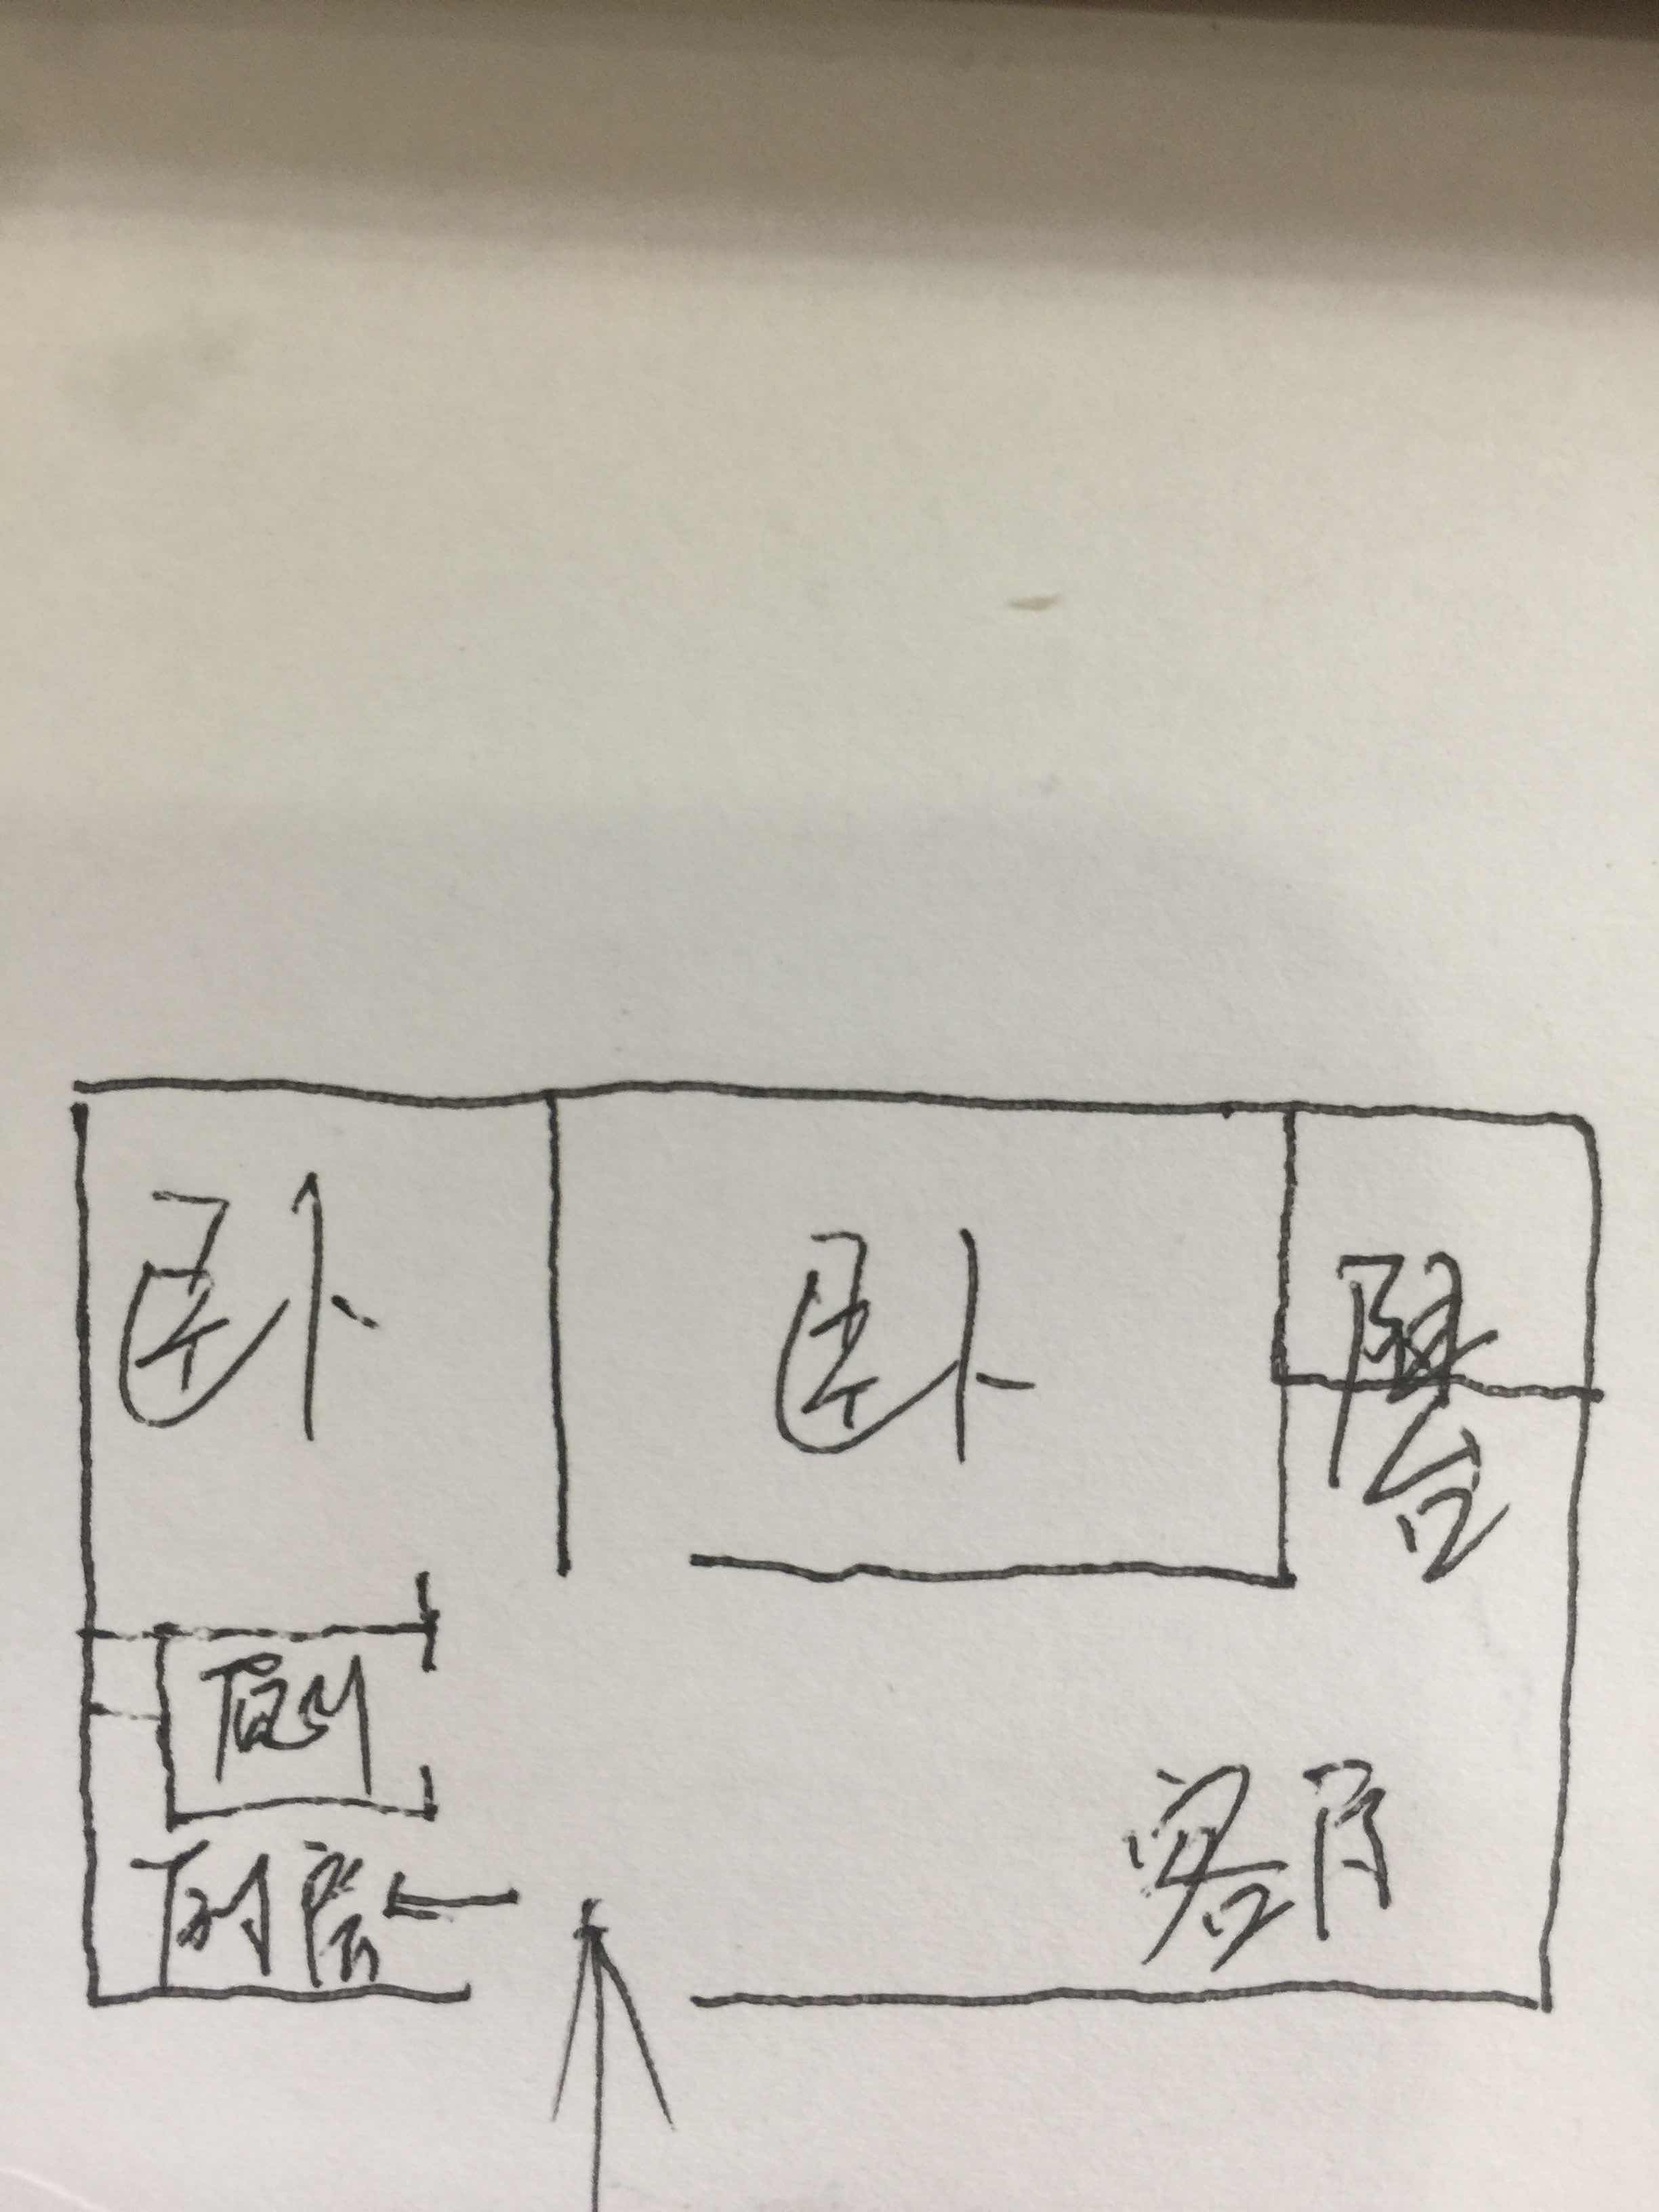 卧
卧
阳台
厕
厨房
客厅